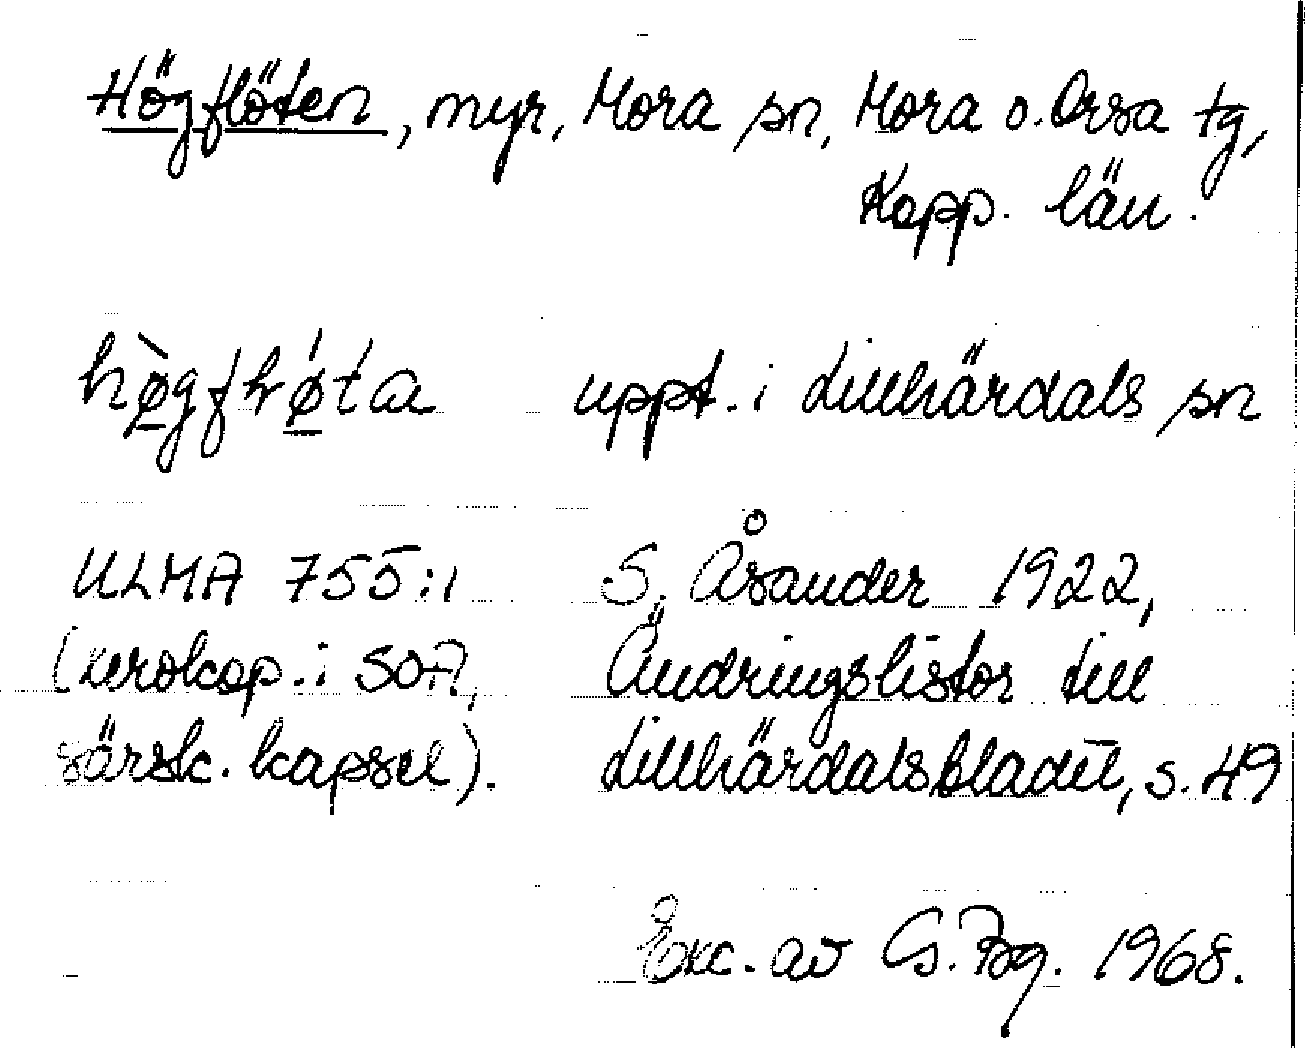 Högflöten, myr, Mora sn, Mora o. Orsa tg,
Kopp. län.
hø̀gfłǿta uppt. i Lillhärdals sn
ULMA 755:1 S. Åsander 1922,
(xerokop. i SOA, Ändringslistor till
särsk. kapsel). Lillhärdalsbladet, s. 49
Exc. av G. Bg. 1968.